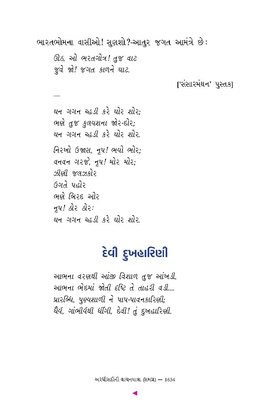 ભારતભોમના વાસીઓ! સુણશો?-આતુર જગત આમંત્રે છેઃ
ઊઠ, ઓ ભરતગોત્ર! તુજ વાટ
જુવે જો! જગત કાળને ઘાટ.
['સંસારમંથન' પુસ્તક]
—
ઘન ગગન ચઢી કરે થોર શોર;
ભણે તુજ કુલયશના જોર-દોર;
ઘન ગગન ચઢી કરે થોર શોર.
નિરખો ઉજાસ, નૃપ! ભયો ભોર;
વનવન ગરજો, નૃપ! ઘોર ઘોર;
ઝીણી જલઝકોર
ઉગતે પહોર
ભણે બિરદ ઓર
નૃપ! ઠોર ઠોરઃ
ઘન ગગન ચઢી કરે થોર શોર.
દેવી દુખહારિણી
આભના વરણથી આંજી વિશાળ તુજ આંખડી,
આભના ભેદમાં જોતી દૃષ્ટિ તે તાહરી વડી...
પ્રારબ્ધિ, પુણ્યશાળી ને પાપ-પાવનકારિણી;
ધૈર્ય, ગાંભીર્યથી ધીંગી, દેવી! તું દુખહારિણી.
અરધીસદીની વાચનયાત્રા — 1634